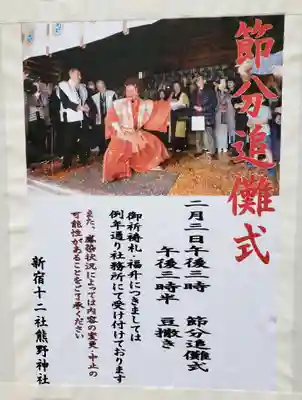 節分追儺式
二月二日午後三時　節分追儺式
午後三時半　豆撒き
御祈祷札・福升につきましては
例年通り社務所にて受け付けております
また、感染状況によっては内容の変更・中止の
可能性があることをご了承ください
新宿十二社熊野神社